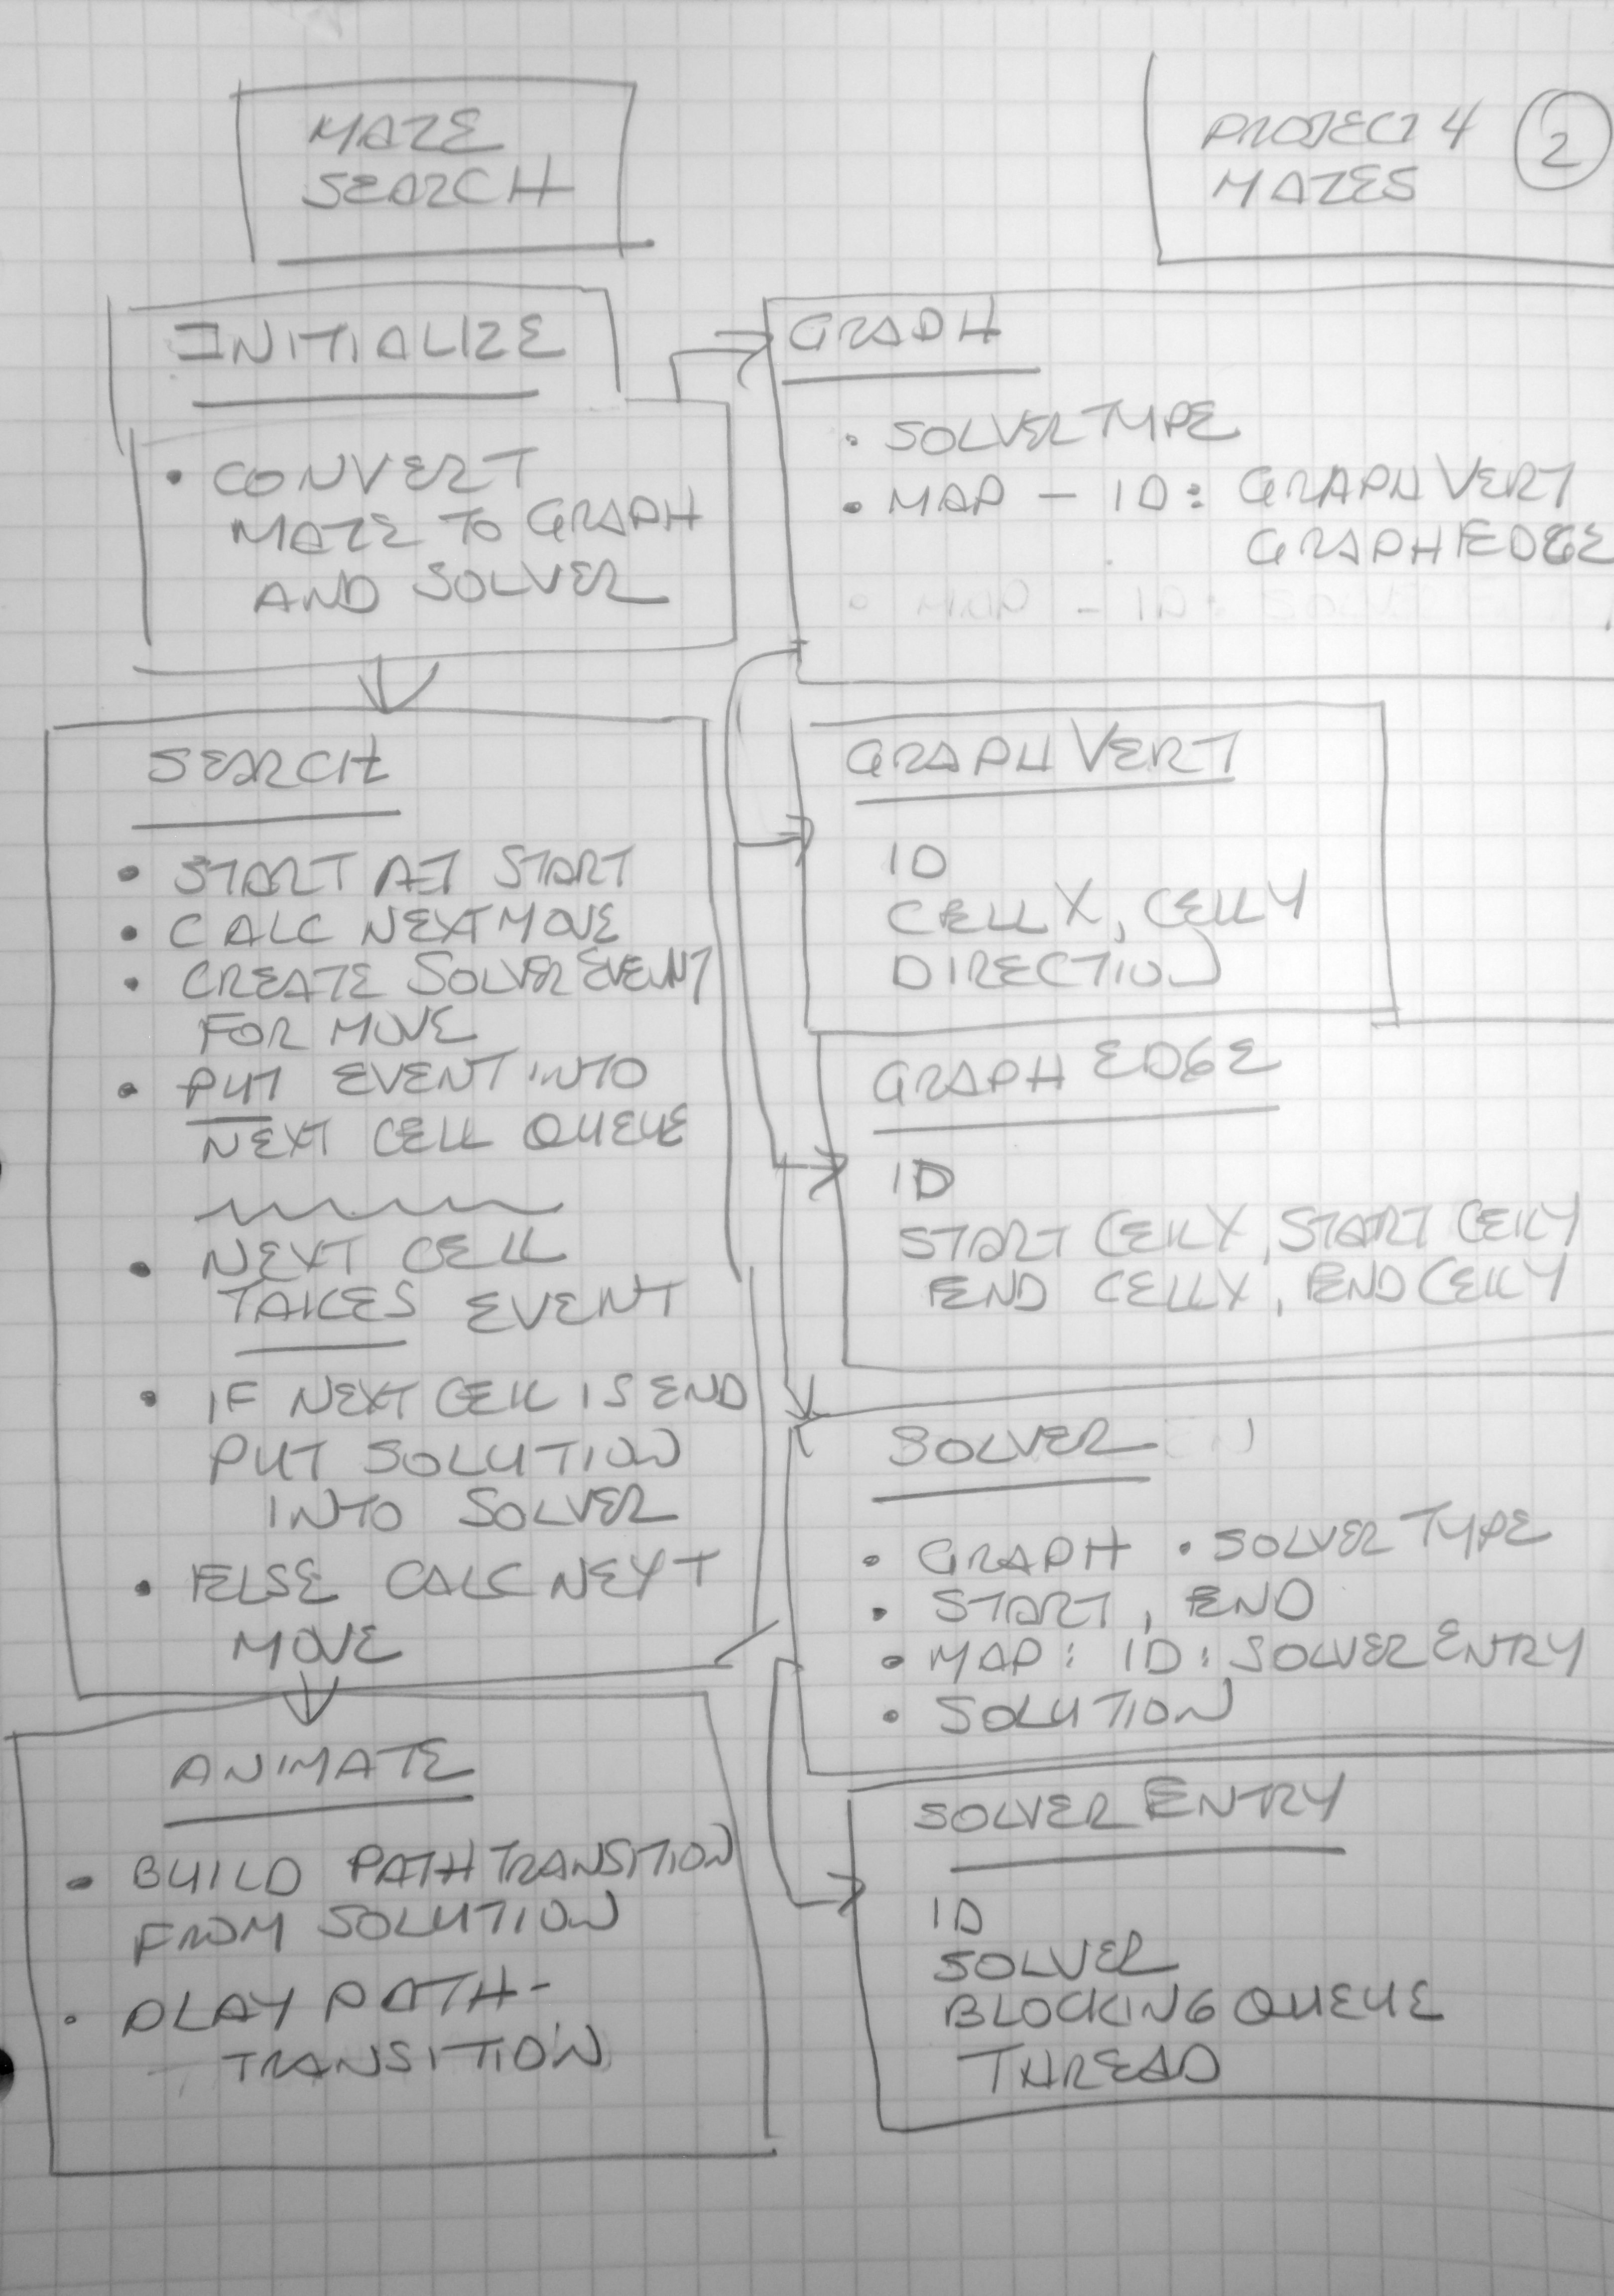 MAZE
SEARCH
PROJECT 4
MAZES
2
INITIALIZE
• CONVERT
MAZE TO GRAPH
AND SOLVER
SEARCH
• START AT START
• CALC NEXT MOVE
• CREATE SOLVER EVENT
FOR MOVE
• PUT EVENT INTO
NEXT CELL QUEUE
• NEXT CELL
TAKES EVENT
• IF NEXT CELL IS END
PUT SOLUTION
INTO SOLVER
• ELSE CALC NEXT
MOVE
ANIMATE
• BUILD PATH TRANSITION
FROM SOLUTION
• PLAY PATH-
TRANSITION
GRAPH
• SOLVER TYPE
• MAP - ID: GRAPH VERT
GRAPH EDGE
• MAP - ID:
GRAPH VERT
ID
CELL X, CELL Y
DIRECTION
GRAPH EDGE
ID
START CELL X, START CELL Y
END CELL X, END CELL Y
SOLVER
• GRAPH • SOLVER TYPE
• START, END
• MAP: ID: SOLVER ENTRY
• SOLUTION
SOLVER ENTRY
ID
SOLVER
BLOCKING QUEUE
THREAD